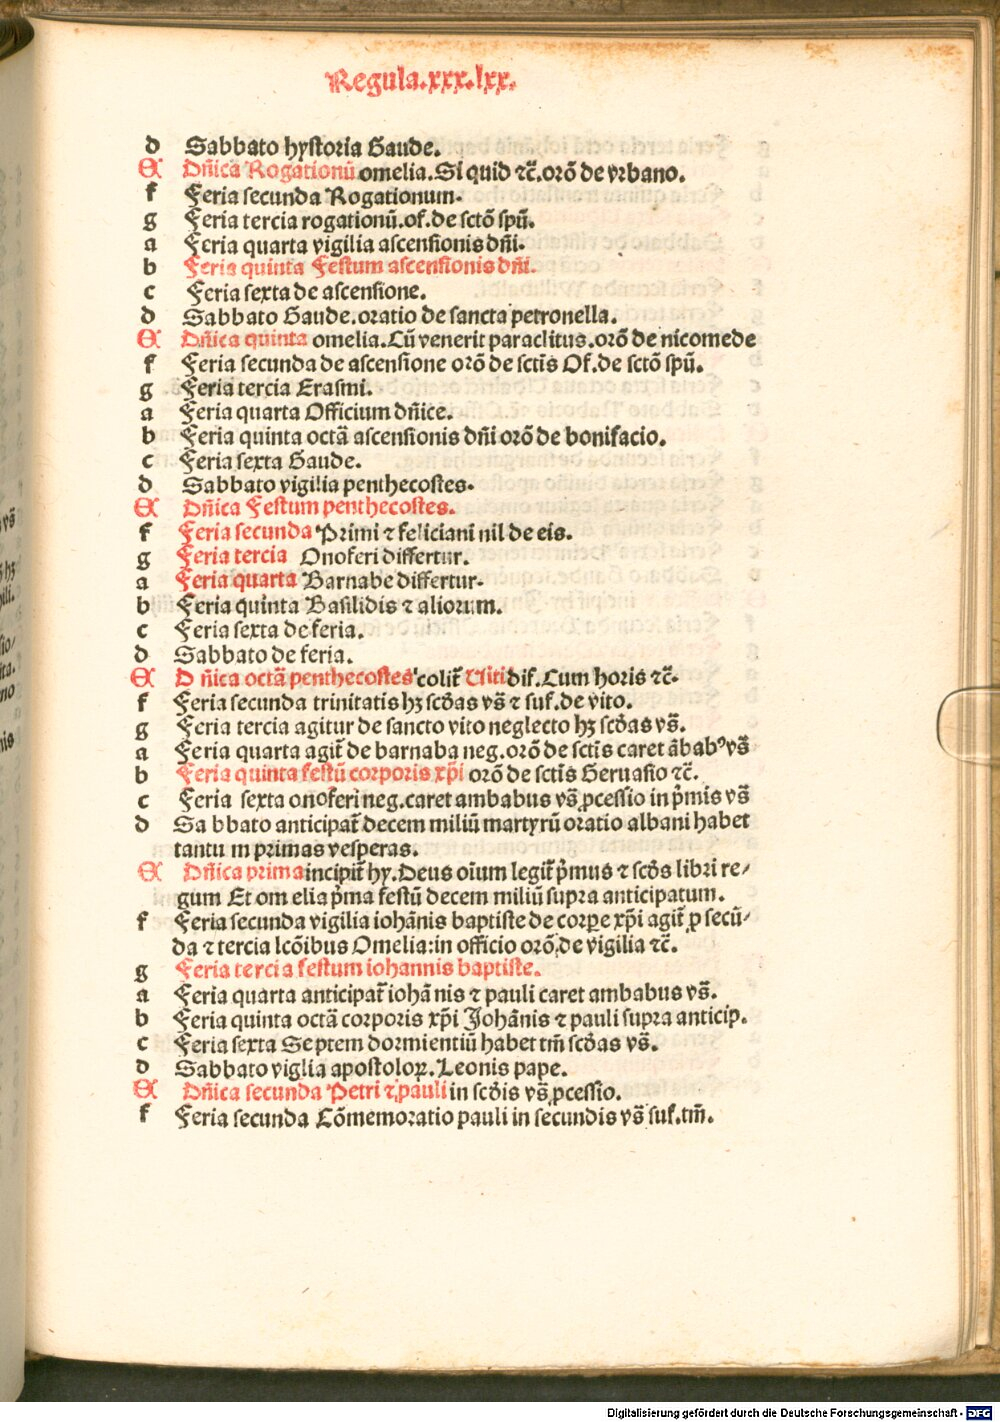 Regula.xxx.lxx.
d Sabbato hystoria Gaude.
E Dñica Rogationũ omelia. Si quid ⁊c̃. orõ de vrbano.
f Feria secunda Rogationum.
g Feria tercia rogationũ. of. de sctõ spũ.
a Feria quarta vigilia ascensionis dñi.
b Feria quinta Festum ascensionis dñi.
c Feria sexta de ascensione.
d Sabbato Gaude. oratio de sancta petronella.
E Dñica quinta omelia. Cũ venerit paraclitus. orõ de nicomede
f Feria secunda de ascensiõne orõ de sctĩs Of. de sctõ spũ.
g Feria tercia Erasmi.
a Feria quarta Officium dñice.
b Feria quinta octã ascensionis dñi orõ de bonifacio.
c Feria sexta Gaude.
d Sabbato vigilia penthecostes.
E Dñica Festum penthecostes.
f Feria secunda Primi ⁊ feliciani nil de eis.
g Feria tercia Onoferi differtur.
a Feria quarta Barnabe differtur.
b Feria quinta Basilidis ⁊ aliorum.
c Feria sexta de feria.
d Sabbato de feria.
E D ñica octã penthecostes colit̃ Uiti dif. Cum horis ⁊c̃.
f Feria secunda trinitatis hꝫ scd̃as vs̃ ⁊ suf. de vito.
g Feria tercia agitur de sancto vito neglecto hꝫ scd̃as vs̃.
a Feria quarta agit̃ de barnaba neg. orõ de sctĩs caret ãbabꝰ vs̃
b Feria quinta festũ corporis xp̃i orõ de sctĩs Geruasio ⁊c̃.
c Feria sexta onoferi neg. caret ambabus vs̃ ꝓcessio in p̃mis vs̃
d Sa bbato anticipat̃ decem miliũ martyrũ oratio albani habet
tantu m primas vesperas.
E Dñica prima incipit̃ hy. Deus oĩum legit̃ p̃mus ⁊ scd̃s libri re/
gum Et om elia p̃ma festũ decem miliũ supra anticipatum.
f Feria secunda vigilia iohãnis baptiste de corꝑe xp̃i agit̃ ꝓ secũ/
da ⁊ tercia lcõibus Omelia: in officio orõ, de vigilia ⁊c̃.
g Feria tercia festum iohannis baptiste.
a Feria quarta anticipat̃ iohã nis ⁊ pauli caret ambabus vs̃.
b Feria quinta octã corporis xp̃i Johãnis ⁊ pauli supra anticip.
c Feria sexta Septem dormientiũ habet tm̃ scd̃as vs̃.
d Sabbato viglia apostoloꝝ. Leonis pape.
E Dñica secunda Petri ⁊ pauli in scd̃is vs̃ ꝓcessio.
f Feria secunda Cõmemoratio pauli in secundis vs̃ suf. tm̃.
Digitalisierung gefördert durch die Deutsche Forschungsgemeinschaft - DFG